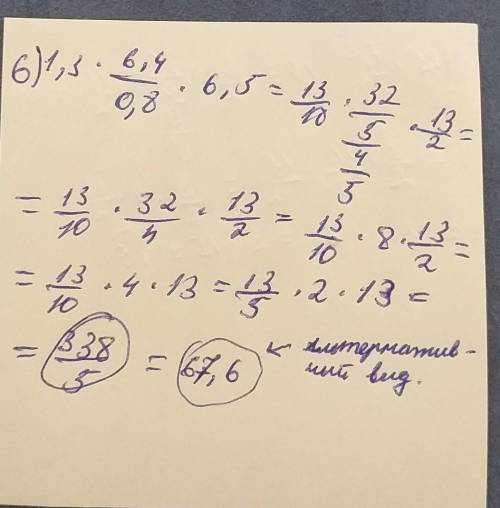 6) 1,3 · 6,4/0,8 · 6,5 = 13/10 · (32/5)/(4/5) · 13/2 =
= 13/10 · 32/4 · 13/2 = 13/10 · 8 · 13/2 =
= 13/10 · 4 · 13 = 13/5 · 2 · 13 =
= 338/5 = 67,6 ← альтернатив-
ный вид.